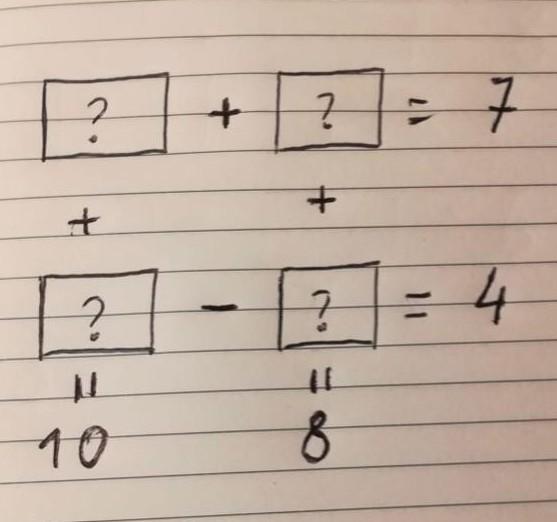 ? + ? = 7
+ +
? - ? = 4
= =
10 8